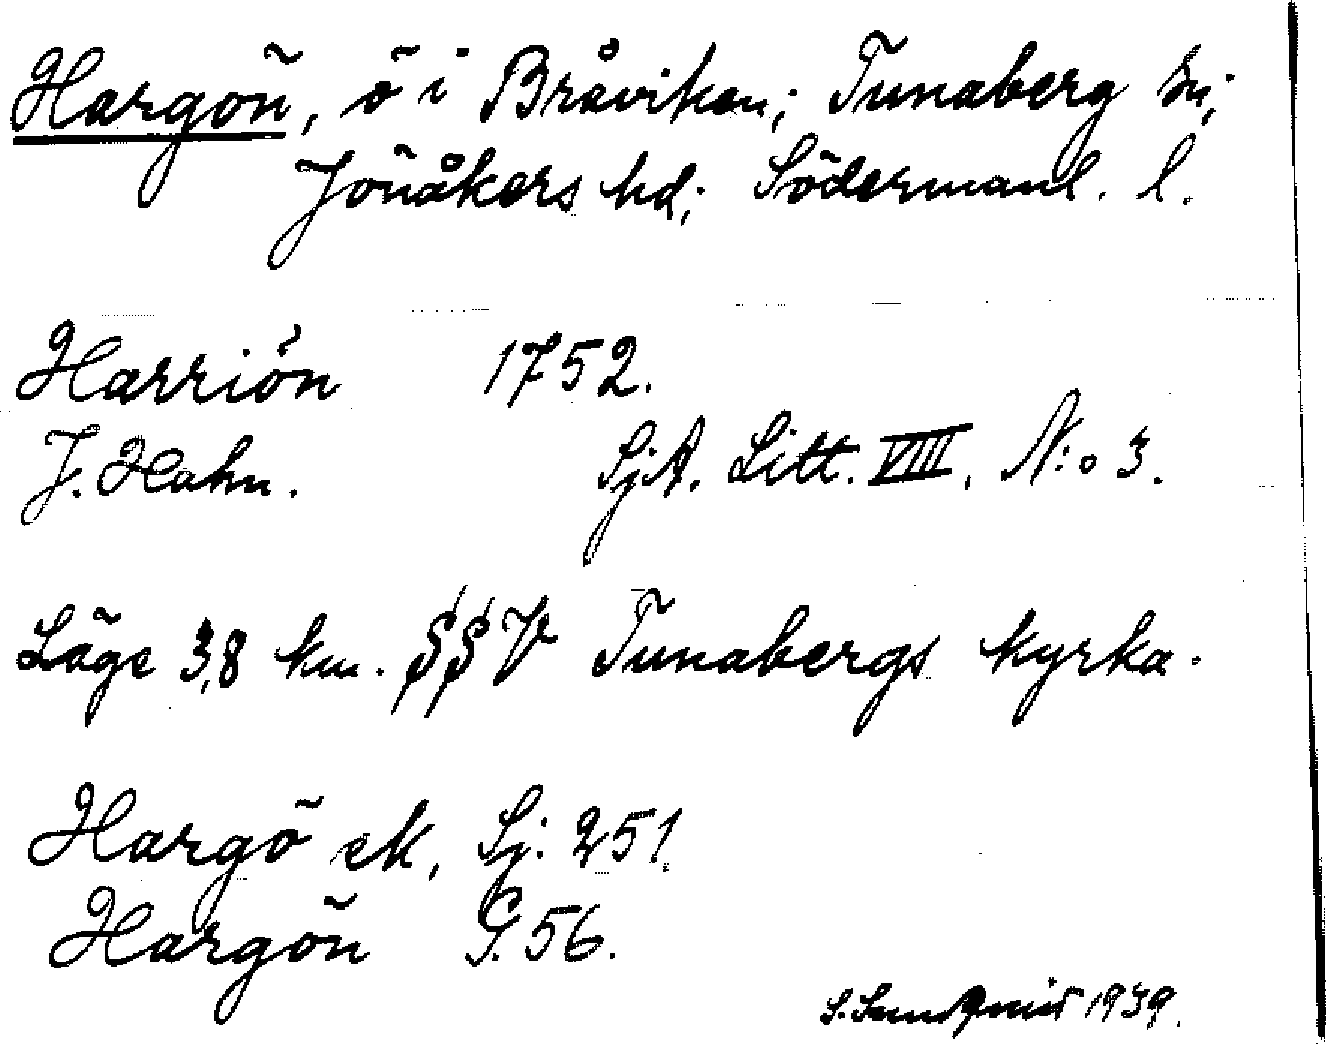 Hargön, ö i Bråviken; Tunaberg sn;
Jönåkers hd; Södermanl. l.
Harriön 1752.
J. Hahn. SjA. Litt. VIII, N:o 3.
Läge 3,8 km. Tunabergs kyrka.
Hargö ek, Sj. 251.
Hargön G. 56.
S. Sundqvist 1939.